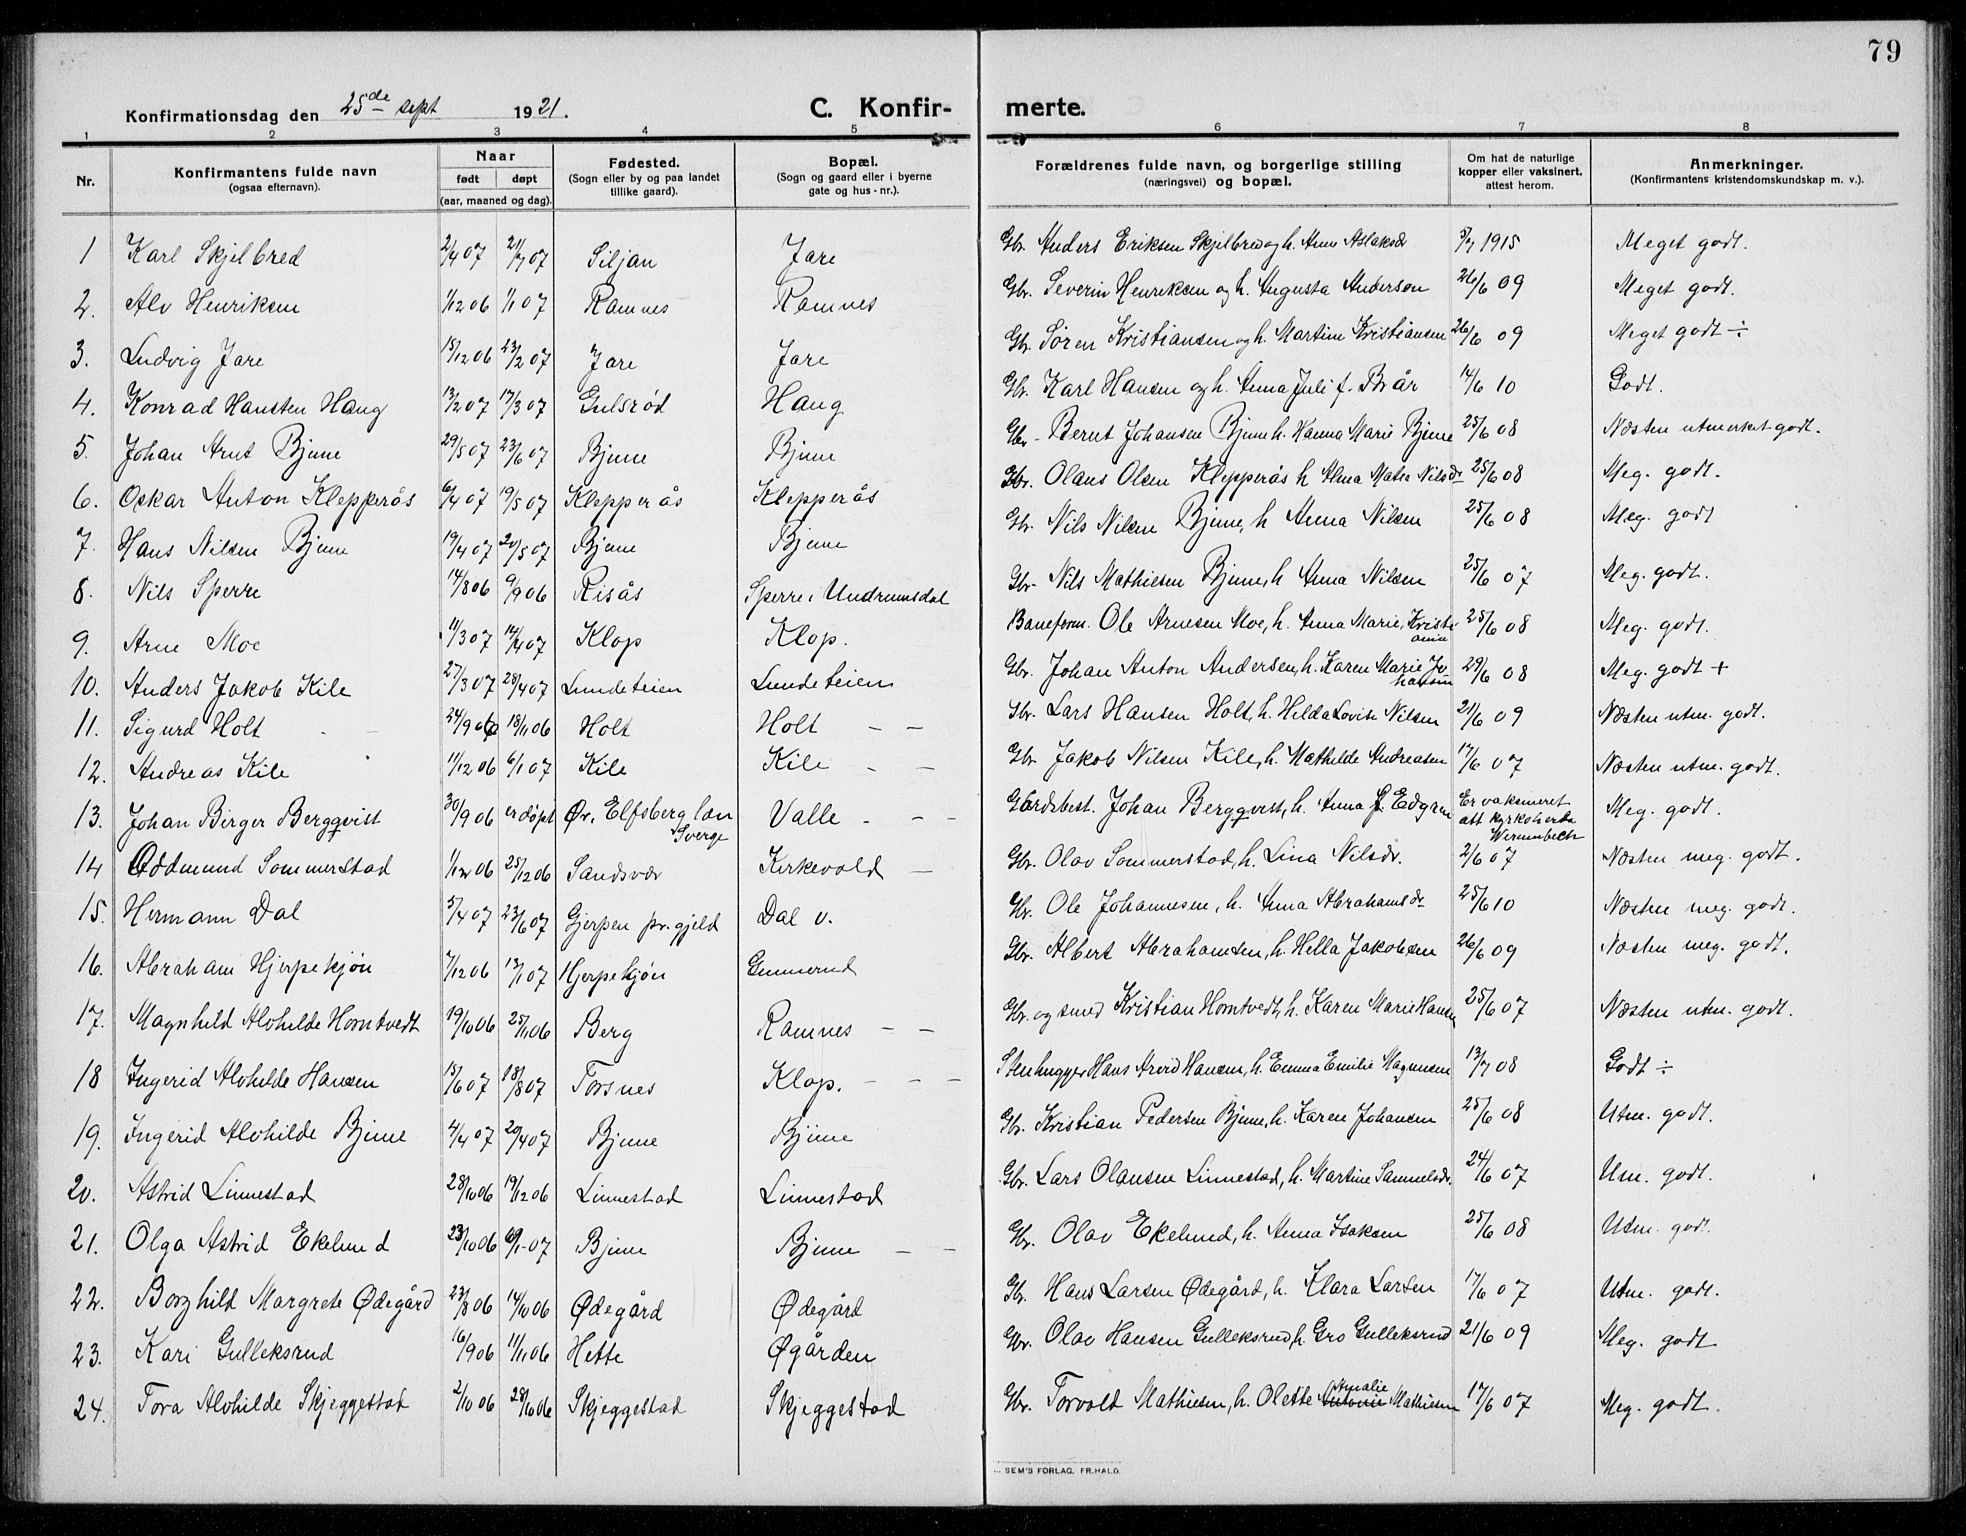 79
Konfirmationsdag den 25de sept 1921.
C. Konfir- merte.
1 2 3 4 5 6 7 8
Nr. Konfirmantens fulde navn (ogsaa efternavn). Naar født døpt (aar, maaned og dag). Fødested. (Sogn eller by og paa landet tillike gaard). Bopæl. (Sogn og gaard eller i byerne gate og hus-nr.). Forældrenes fulde navn, og borgerlige stilling (næringsvei) og bopæl. Om hat de naturlige kopper eller vaksinert, attest herom. Anmerkninger. (Konfirmantens kristendomskundskap m. v.).
1 Karl Skjelbred 2/4 07 21/7 07 Siljan Jare Gbr. Anders Eriksen Skjelbred og h. Anne Aslaksdr 5/7 1915 Meget godt.
2. Alv Henriksen 1/12 06 1/1 07 Ramnes Ramnes Gbr. Severin Henriksen og h. Augusta Anderson 26/6 09 Meget godt.
3. Ludvig Jare 15/12 06 23/2 07 Jare Jare Gbr. Søren Kristiansen og h. Martine Kristiansen 26/6 09 Meget godt ÷
4. Konrad Hansten Haug 13/2 07 17/3 07 Gulsrød Haug Gbr. Karl Hansen og h. Anna Juli f. Brår 14/6 10 Godt.
5. Johan Arnt Bjune 29/5 07 23/6 07 Bjune Bjune Gbr. Bernt Johansen Bjune h. Hanna Marie Bjune 25/6 08 Næsten utmerket godt.
6. Oskar Anton Klepperås 6/4 07 19/5 07 Klepperås Klepperås Gbr. Olaus Olsen Klepperås h Alma Matea Nilsdr 25/6 08 Meg. godt.
7. Hans Nilsen Bjune 19/4 07 20/5 07 Bjune Bjune Gbr. Nils Nilsen Bjune, h Anna Nilsen 25/6 08 Meg. godt
8. Nils Sperre 14/8 06 9/9 06 Risås Sperre i Undrumsdal Gbr. Nils Mathiesen Bjune, h Anna Nilsen 25/6 07 Meg. godt.
9. Arne Moe 11/3 07 14/4 07 Klop Klop. Baneform. Ole Arnesen Moe, h. Anna Marie, Kristi ania 25/6 08 Meg. godt.
10. Anders Jakob Kile 27/3 07 28/4 07 Lundeteien Lundeteien Gbr. Johan Anton Andersen, h. Karen Marie Jo hansen 29/6 08 Meg. godt +
11. Sigurd Holt 24/9 06 18/11 06 Holt Holt — — Gbr. Lars Hansen Holt, h. Hilda Lovise Nilsen 21/6 09 Næsten utm. godt.
12. Andreas Kile 11/12 06 6/1 07 Kile Kile — — Gbr. Jakob Nilsen Kile, h. Mathilde Andreasen 17/6 07 Næsten utm. godt.
13. Johan Birger Bergqvist 30/9 06 er døpt Ør. Elfsberg län Sverge Valle — — — Gårdsbest. Johan Bergqvist, h. Anna f. Edgren Er vaksineret att kyrkoherde Meg. godt.
14 Oddmund Sommerstad 1/12 06 25/12 06 Sandsvær Kirkevold — Gbr. Olav Sommerstad, h. Lina Nilsdr. 2/6 07 Næsten meg. godt.
15. Hermann Dal 5/4 07 23/6 07 Gjerpen pr.gjeld Dal v. Gbr. Ole Johannesen, h. Anna Abrahamsdr 25/6 10 Næsten meg. godt.
16. Abraham Hjerpekjøn 7/12 06 13/1 07 Hjerpekjøn Gunnerud Gbr. Albert Abrahamsen, h. Hella Jakobsen 26/6 09 Næsten meg. godt.
17. Magnhild Alvhilde Horntvedt 19/10 06 25/11 06 Berg Ramnes — — Gbr. og smed Kristian Horntvedt, h. Karen Marie Hansen 25/6 07 Næsten utm. godt.
18 Ingerid Alvhilde Hansen 15/6 07 18/8 07 Torsnes Klop. — — — Stenhugger Hans Arvid Hansen, h. Emma Emilie Magnusen 13/7 08 Godt ÷
19. Ingerid Alvhilde Bjune 4/4 07 20/4 07 Bjune Bjune Gbr. Kristian Pedersen Bjune, h. Karen Johansen 25/6 08 Utm. godt.
20. Astrid Linnestad 28/10 06 19/12 06 Linnestad Linnestad Gbr. Lars Olausen Linnestad, h. Martine Samuelsdr. 24/6 07 Utm. godt.
21. Olga Astrid Ekelund 23/10 06 6/1-07 Bjune Bjune — — Gbr. Olav Ekelund, h. Anna Isaksen 25/6 08 Utm. godt.
22. Borghild Margrete Ødegård 23/8 06 14/10 06 Ødegård Ødegård Gbr. Hans Larsen Ødegård, h. Klara Larsen 17/6 07 Utm. godt.
23. Kari Gulleksrud 16/9 06 11/11 06 Hette Øgården Gbr. Olav Hansen Gulleksrud, h. Gro Gulleksrud 21/6 09 Meg. godt
24. Tora Alvhilde Skjeggestad 2/10 06 28/10 06 Skjeggestad Skjeggestad Gbr. Torvald Mathiesen, h. Olette Amalie Mathiesen 17/6 07 Meg. godt.
SEM'S FORLAG. FR.HALD.